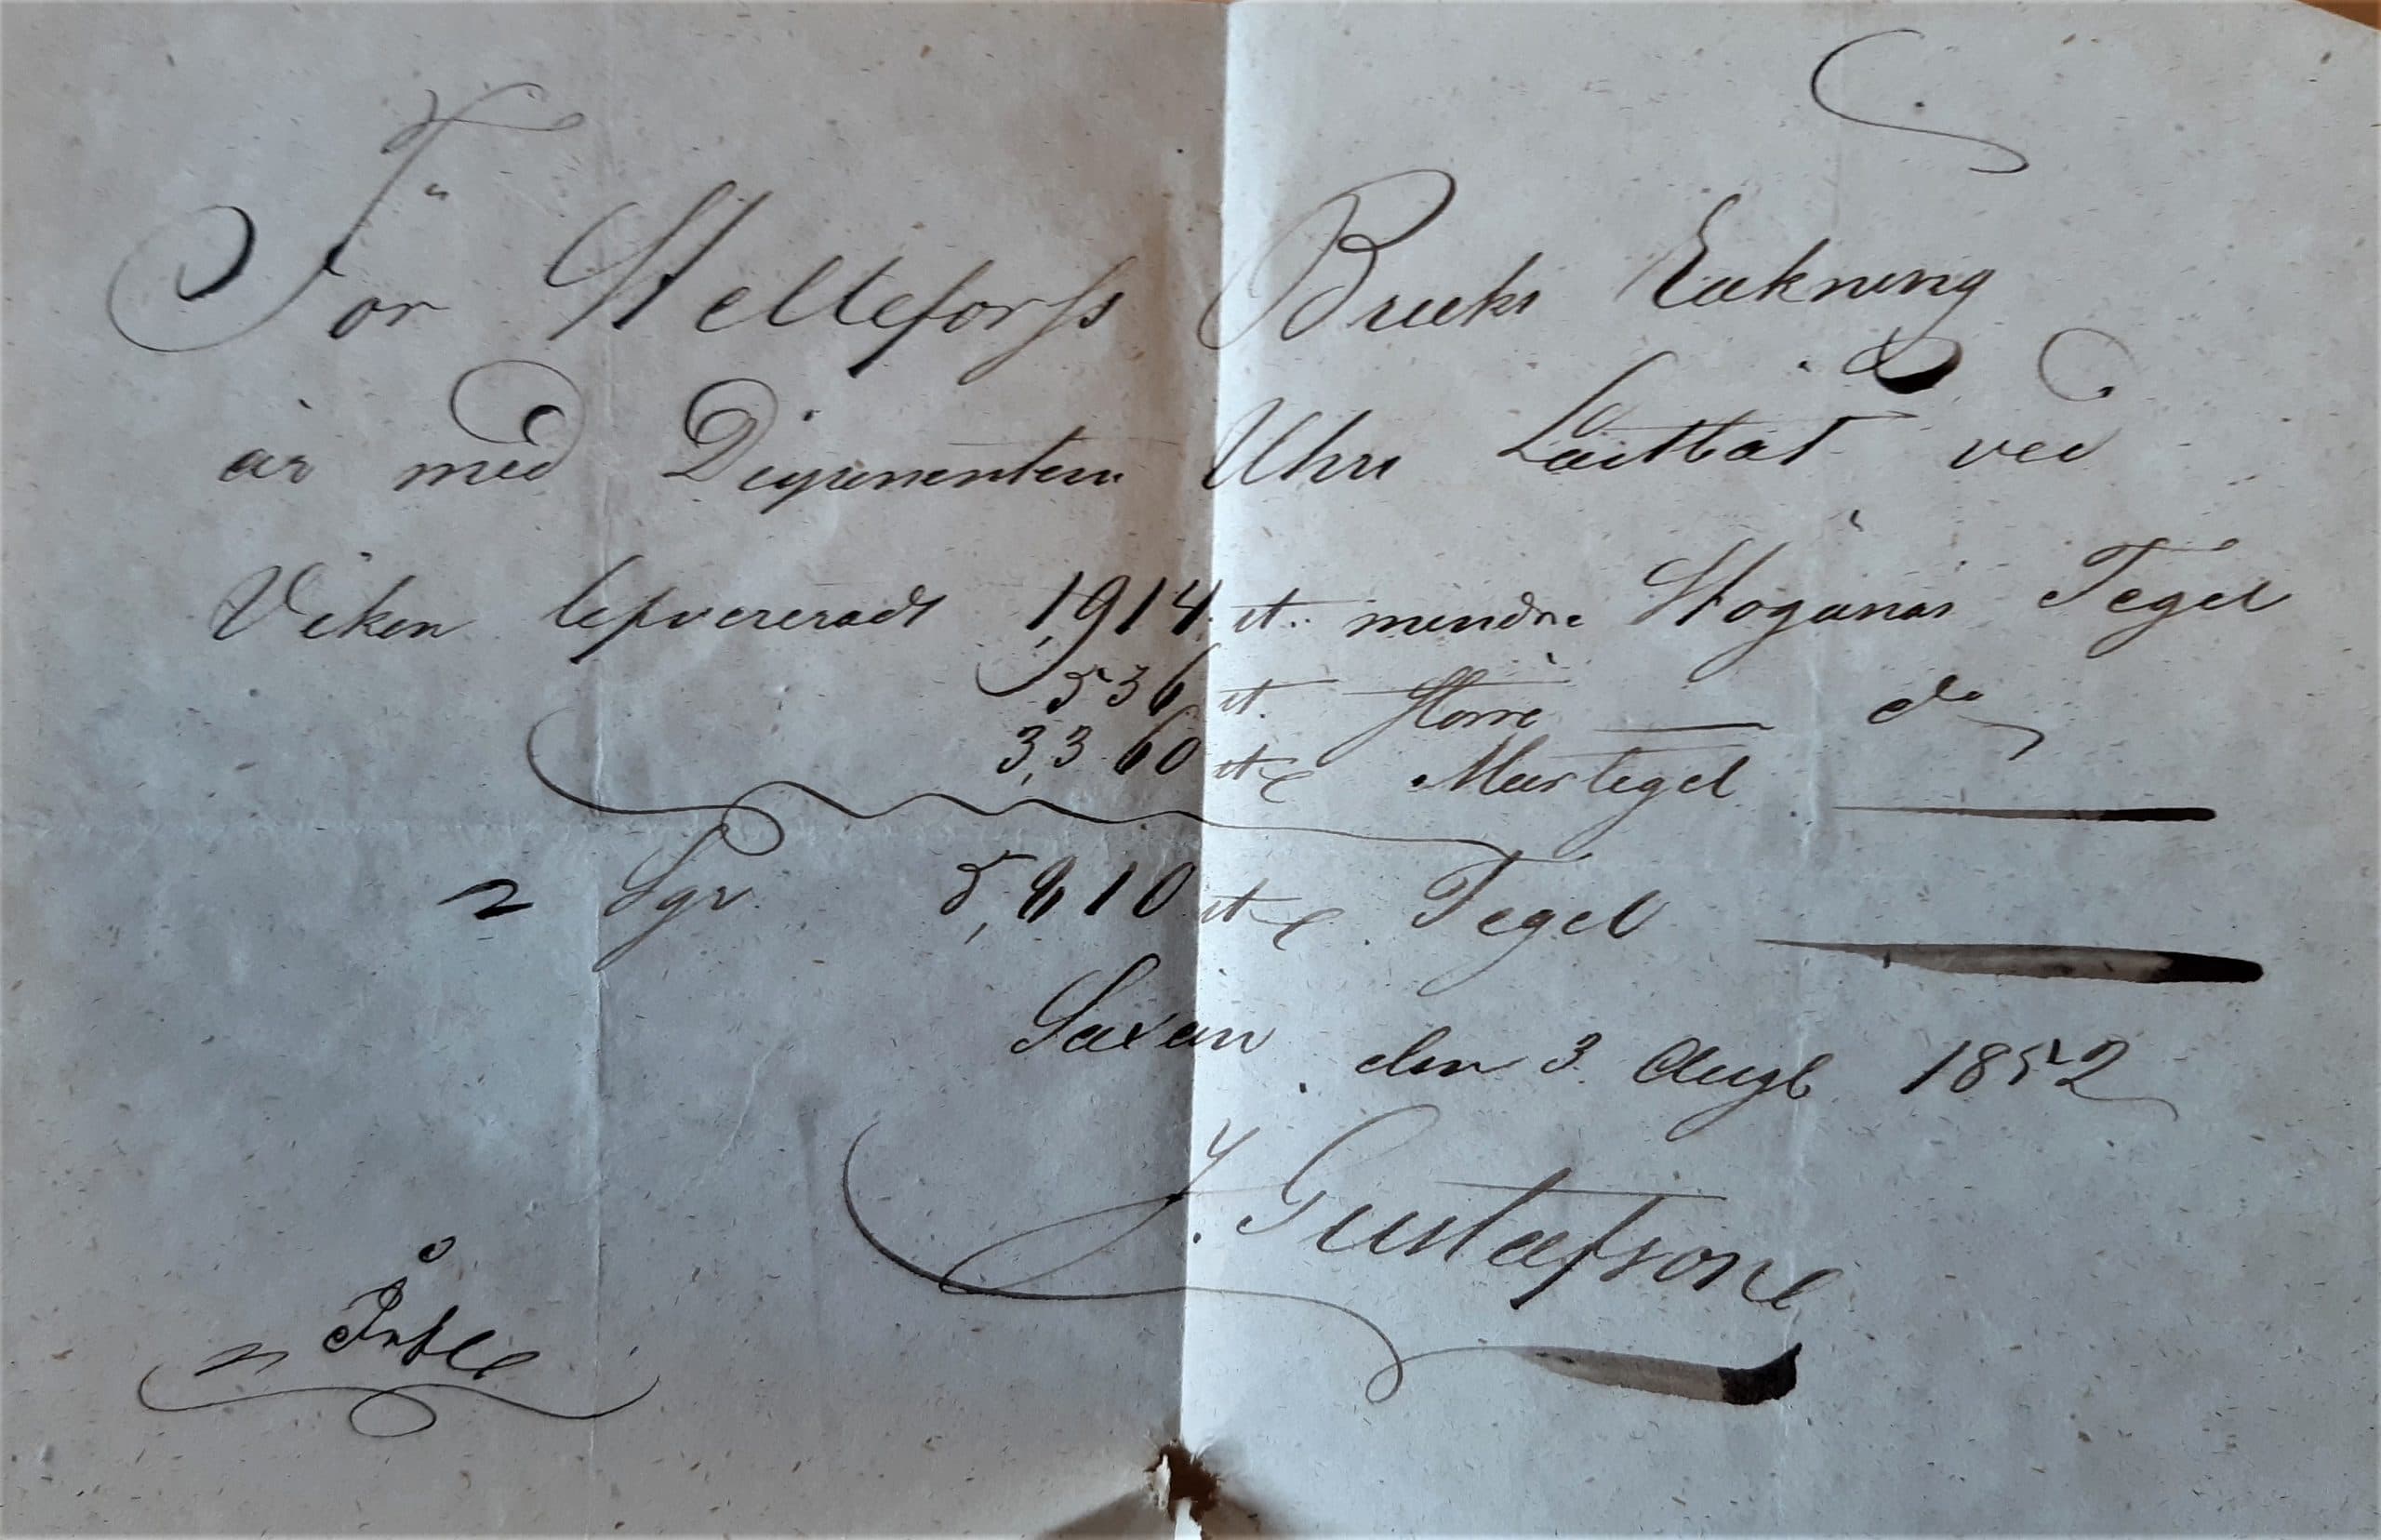 För Hellefors Bruks Räkning
är med Disponenten Uhrs Lastbåt ved
Viken lefvereradt 1,914 st. mindre Höganäs Tegel
536 st. Större — do
3,360 st Murtegel
Sgr 5,810 st Tegel
Saxån den 3 Augt 1852
J. Gustafson